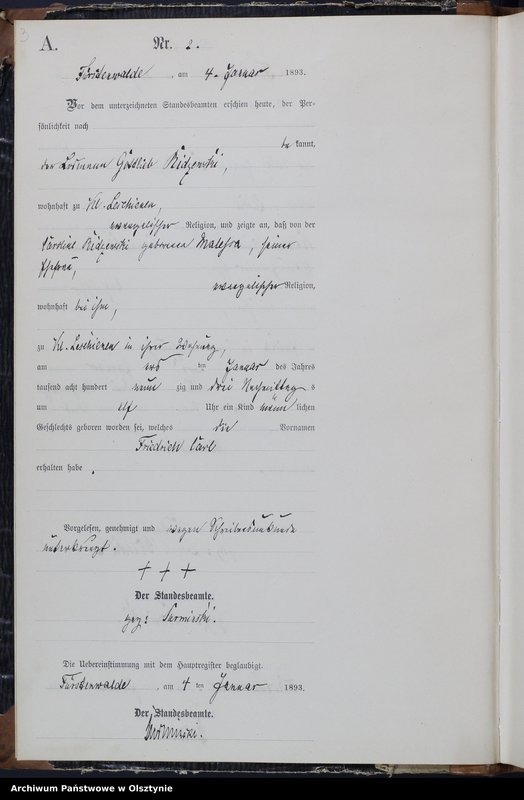 3
A.
Nr. 2.
Fürstenwalde, am 4. Januar 1893.
Vor dem unterzeichneten Standesbeamten erschien heute, der Per-
sönlichkeit nach
be kannt,
der Losmann Gottlieb
wohnhaft zu Kl. Leschienen,
evangelischer Religion, und zeigte an, daß von der
Caroline geborenen, seiner
Ehefrau,
evangelischer Religion,
wohnhaft bei ihm,
zu Kl. Leschienen in ihrer Wohnung,
am ten Januar des Jahres
tausend acht hundert neun zig und drei Nachmittag s
um elf Uhr ein Kind männ lichen
Geschlechts geboren worden sei, welches die Vornamen
Friedrich Carl
erhalten habe.
Vorgelesen, genehmigt und wegen Schreibensunkunde
unterkreuzt.
+ + +
Der Standesbeamte.
gez:
Die Uebereinstimmung mit dem Hauptregister beglaubigt.
Fürstenwalde, am 4 ten Januar 1893.
Der Standesbeamte.
Archiwum Państwowe w Olsztynie